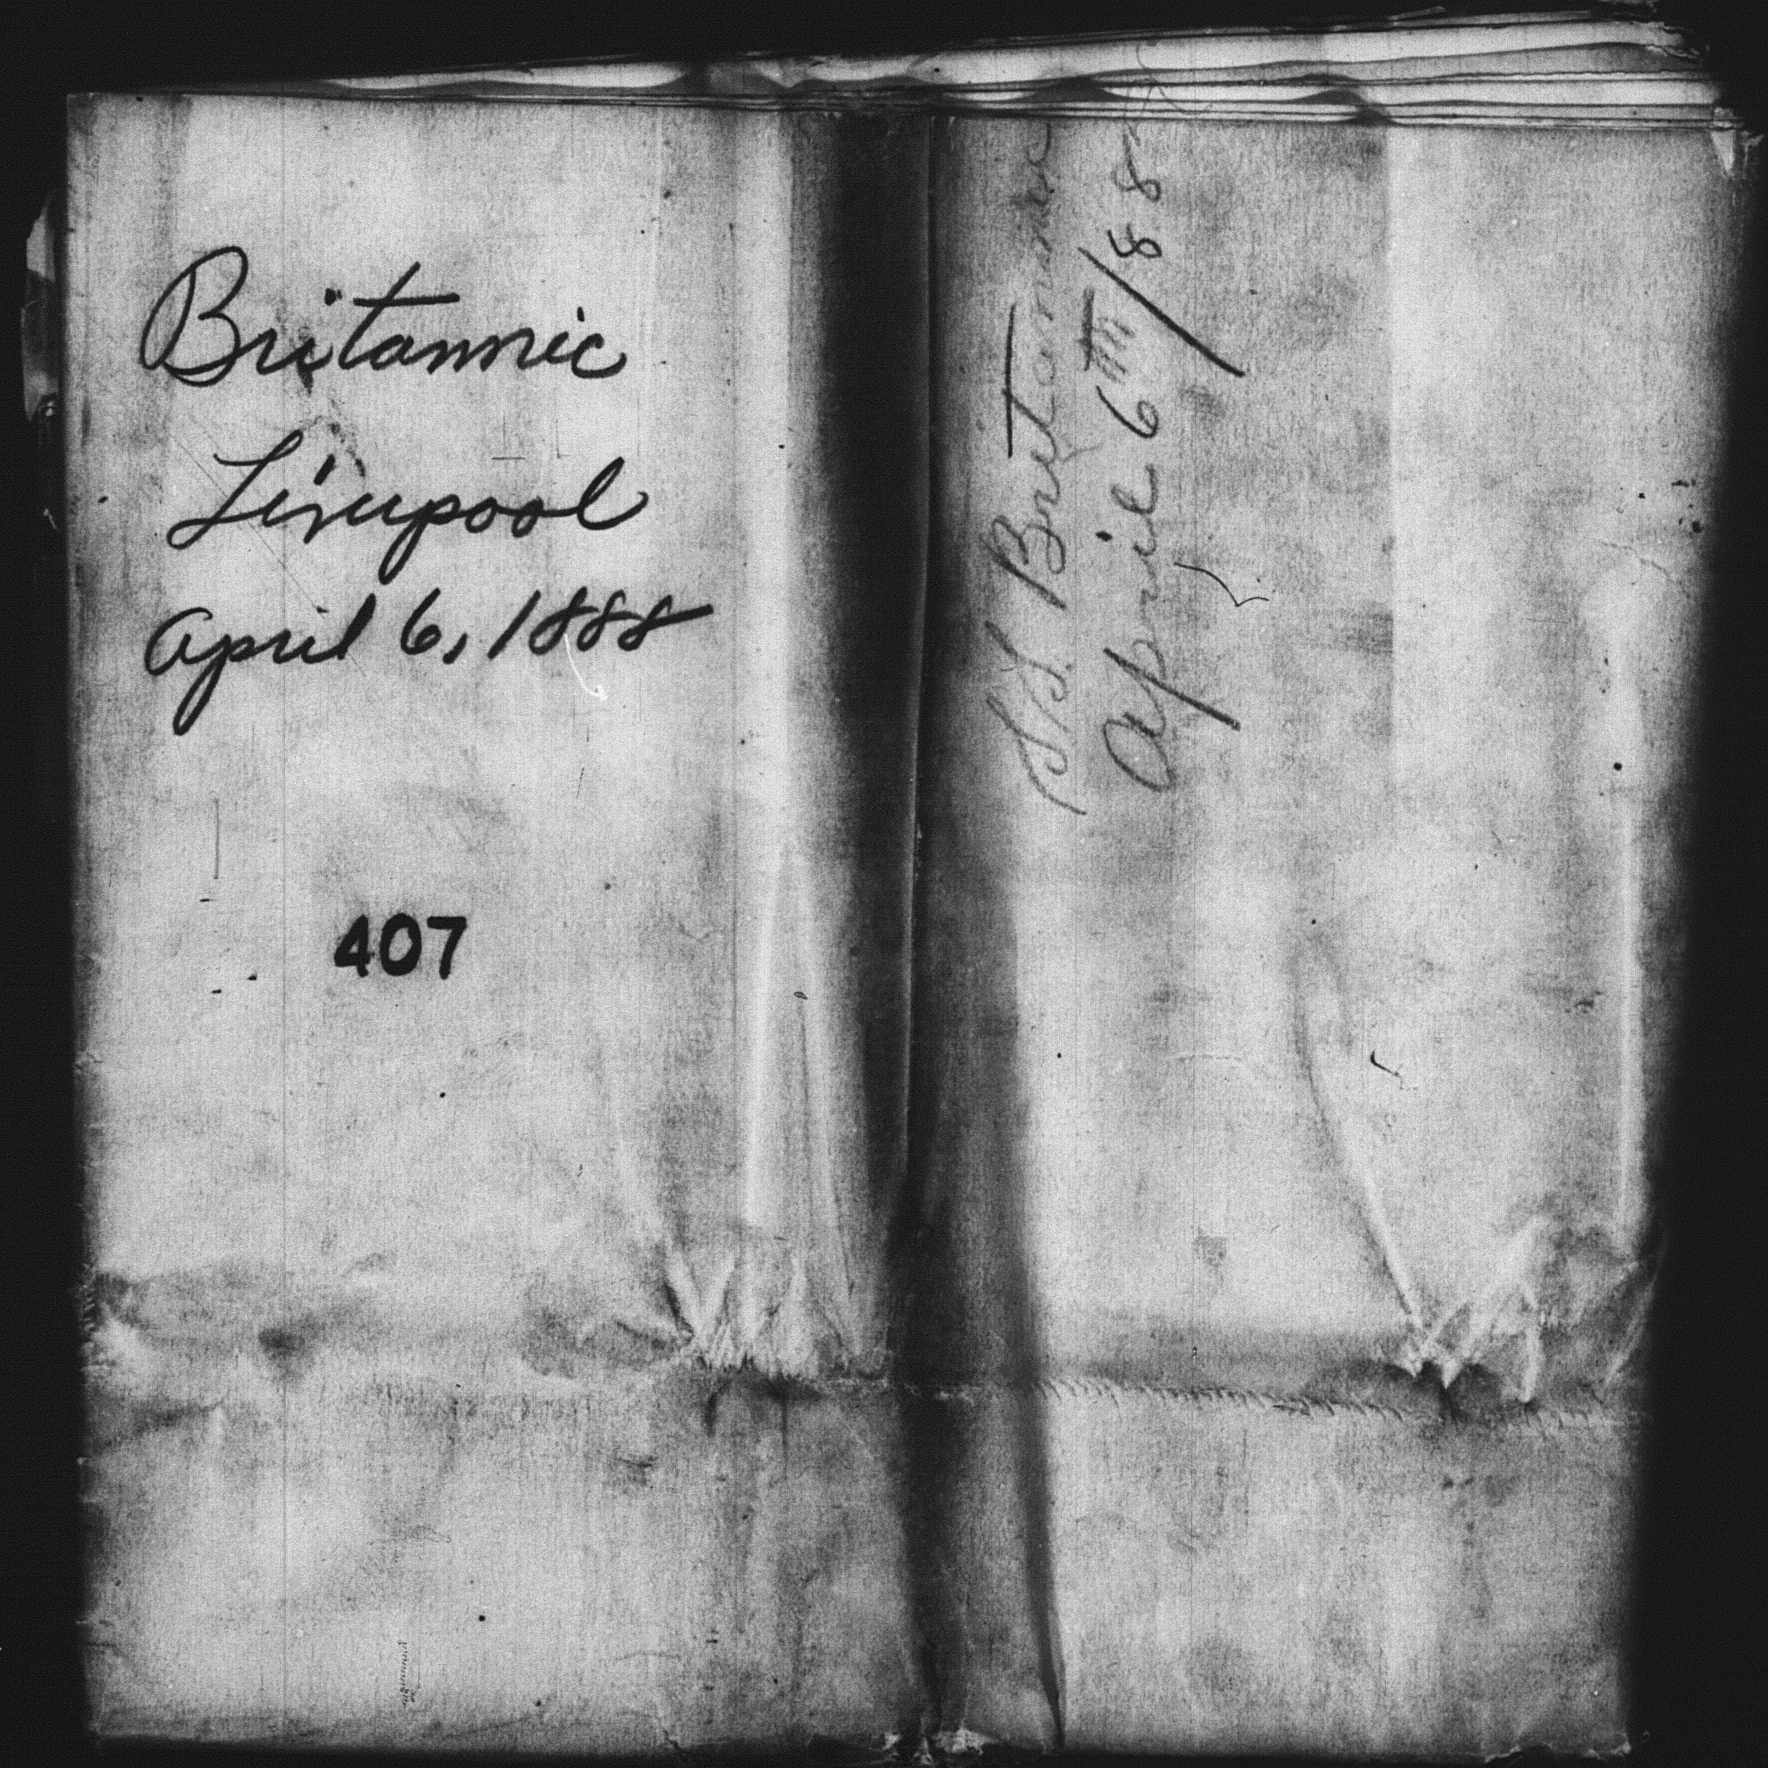 Britannic
Liverpool
April 6, 1888
407
S.S. Britannic
April 6th/88